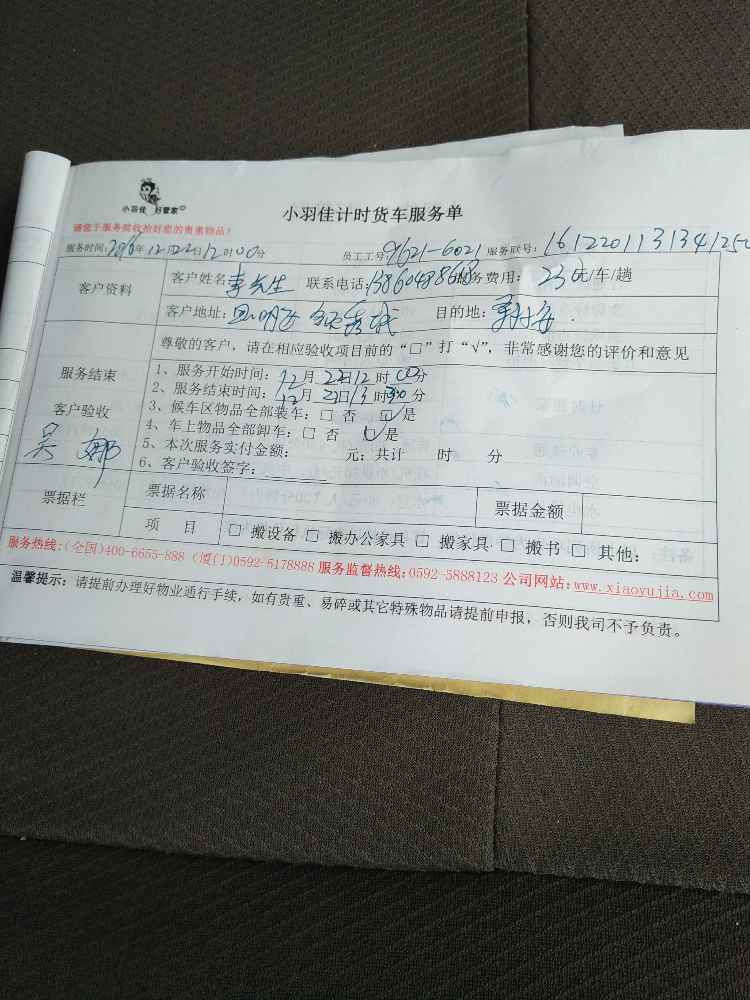 小羽佳 好管家
小羽佳计时货车服务单
请您于服务前收拾好您的贵重物品！
服务时间：2016年12月22日12时00分 员工工号：9621-6021 服务联号：161220113134125
客户资料
客户姓名：李先生 联系电话：1386048866 服务费用：230元/车/趟
客户地址：思明区 目的地：
服务结束
客户验收
吴娜
尊敬的客户，请在相应验收项目前的“□”打“√”，非常感谢您的评价和意见
1、服务开始时间：12月22日12时00分
2、服务结束时间：12月22日13时30分
3、候车区物品全部装车：□ 否 ☑ 是
4、车上物品全部卸车：□ 否 ☑ 是
5、本次服务实付金额： 元；共计 时 分
6、客户验收签字：
票据栏
票据名称 票据金额
项 目 □ 搬设备 □ 搬办公家具 □ 搬家具 □ 搬书 □ 其他：
服务热线：(全国)400-6655-888 (厦门)0592-5178888 服务监督热线：0592-5888123 公司网站：www.xiaoyujia.com
温馨提示：请提前办理好物业通行手续，如有贵重、易碎或其它特殊物品请提前申报，否则我司不予负责。